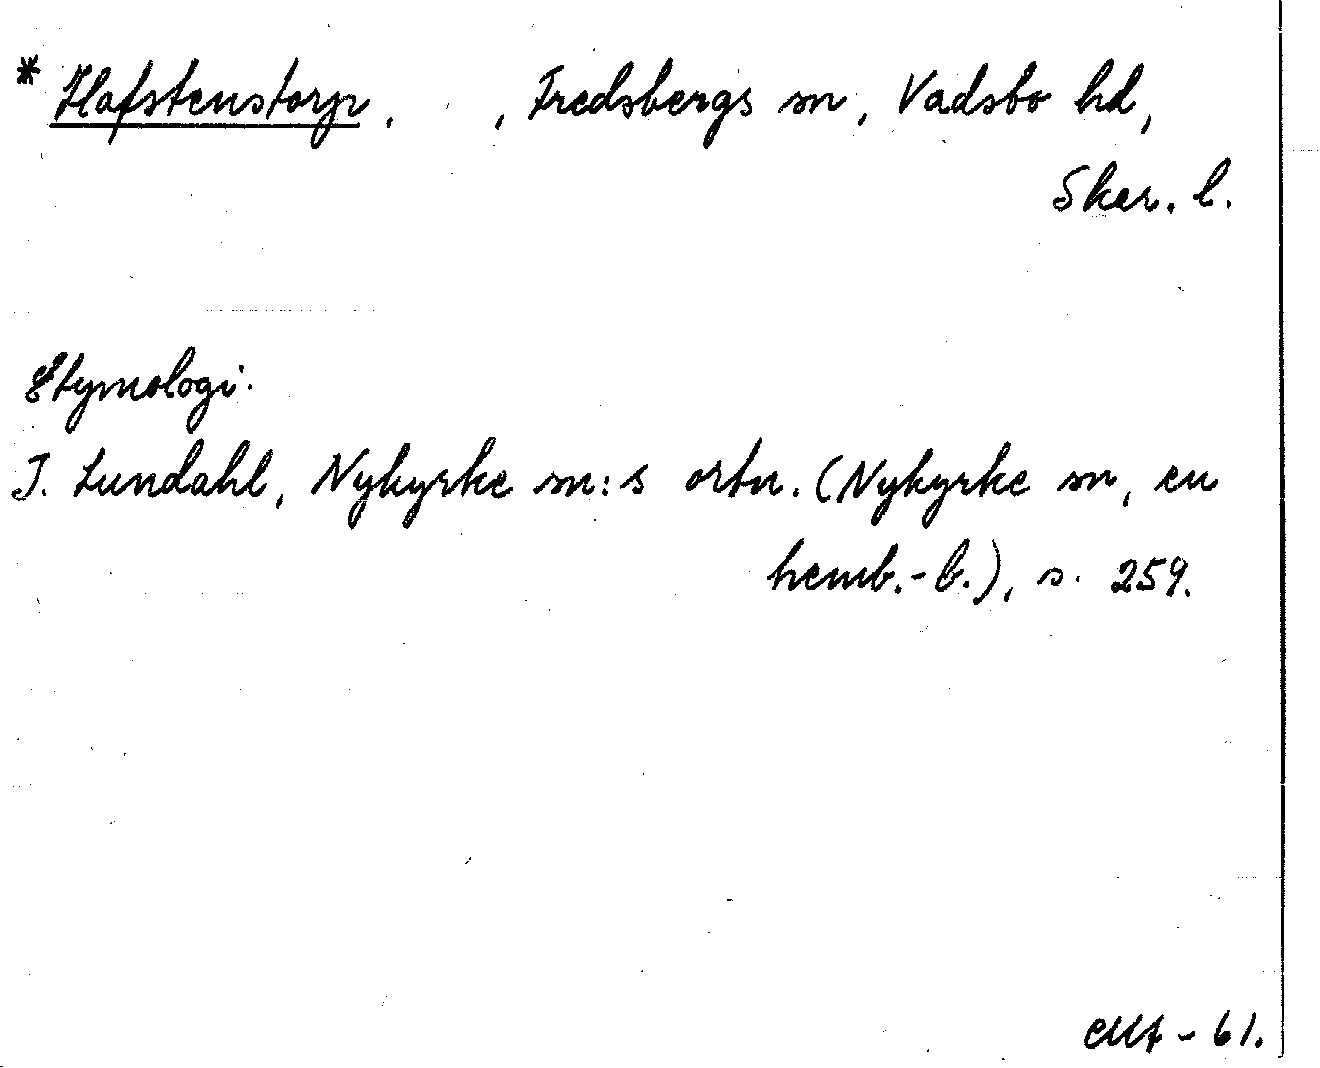 * Hafstenstorp, , Fredsbergs sn, Vadsbo hd,
Skar. l.
Etymologi.
I. Lundahl, Nykyrke sn:s ortn. (Nykyrke sn, en
hemb.-b.), s. 259.
- 61.